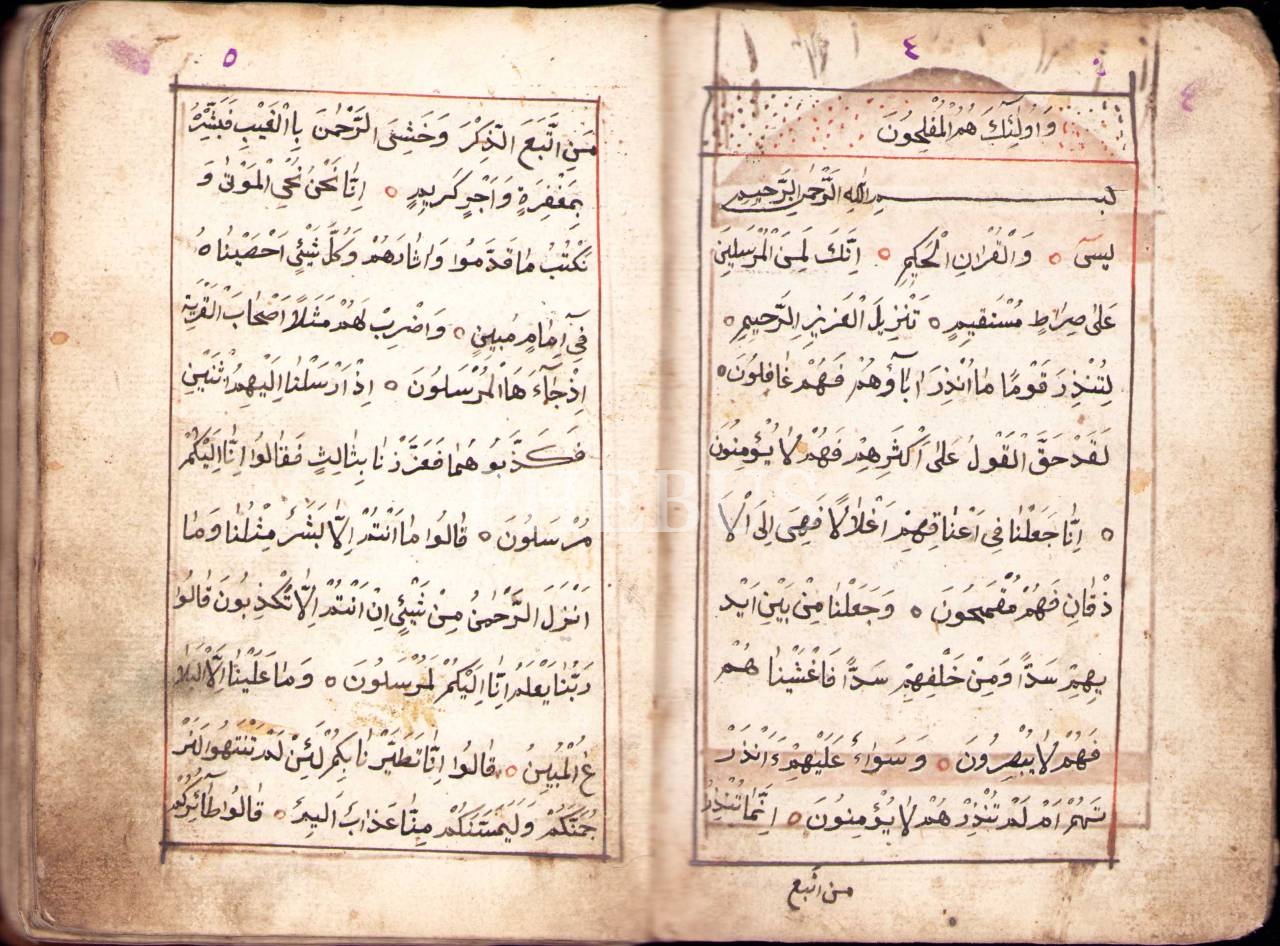 ٤
وَاُولٰٓئِكَ هُمُ الْمُفْلِحُونَ
بِسْمِ اللهِ الرَّحْمٰنِ الرَّحِيمِ
يٰسٓ ه وَالْقُرْاٰنِ الْحَكِيمِ ه اِنَّكَ لَمِنَ الْمُرْسَلِينَ
عَلٰى صِرَاطٍ مُسْتَقِيمٍ ه تَنْزِيلَ الْعَزِيزِ الرَّحِيمِ ه
لِتُنْذِرَ قَوْمًا مٰا اُنْذِرَ اٰبٰٓاؤُهُمْ فَهُمْ غٰافِلُونَ ه
لَقَدْ حَقَّ الْقَوْلُ عَلٰى اَكْثَرِهِمْ فَهُمْ لٰا يُؤْمِنُونَ
ه اِنّٰا جَعَلْنٰا فِى اَعْنٰاقِهِمْ اَغْلٰالًا فَهِىَ اِلَى الْاَ
ذْقٰانِ فَهُمْ مُقْمَحُونَ ه وَجَعَلْنٰا مِنْ بَيْنِ اَيْد
يهِمْ سَدًّا وَمِنْ خَلْفِهِمْ سَدًّا فَاَغْشَيْنٰا هُمْ
فَهُمْ لٰا يُبْصِرُونَ ه وَسَوٰاءٌ عَلَيْهِمْ ءَاَنْذَرْ
تَهُمْ اَمْ لَمْ تُنْذِرْ هُمْ لٰا يُؤْمِنُونَ ه اِنَّمٰا تُنْذِرُ
من اتبع
٥
مَنِ اتَّبَعَ الذِّكْرَ وَخَشِىَ الرَّحْمٰنَ بِا الْغَيْبِ فَبَشِّرْهُ
بِمَغْفِرَةٍ وَاَجْرٍ كَرِيمٍ ه اِنّٰا نَحْنُ نُحْىِ الْمَوْتٰى وَ
نَكْتُبُ مٰا قَدَّمُوا وَاٰثٰارَهُمْ وَكُلَّ شَيْئٍ اَحْصَيْنٰاهُ
فِىٓ اِمٰامٍ مُبِينٍ ه وَاضْرِبْ لَهُمْ مَثَلًا اَصْحٰابَ الْقَرْيَةِ
اِذْ جٰٓاءَ هَا الْمُرْسَلُونَ ه اِذْ اَرْسَلْنٰا اِلَيْهِمُ اثْنَيْنِ
فَكَذَّبُو هُمٰا فَعَزَّزْ نٰا بِثٰالِثٍ فَقٰالُوا اِنّٰا اِلَيْكُمْ
مُرْسَلُونَ ه قٰالُوا مٰا اَنْتُمْ اِلّٰا بَشَرٌ مِثْلُنٰا وَمٰا
اَنْزَلَ الرَّحْمٰنُ مِنْ شَيْئٍ اِنْ اَنْتُمْ اِلّٰا تَكْذِبُونَ قٰالُوا
رَبُّنٰا يَعْلَمُ اِنّٰا اِلَيْكُمْ لَمُرْسَلُونَ ه وَمٰا عَلَيْنٰا اِلَّا الْبَلٰا
غُ الْمُبِينُ ه قٰالُوا اِنّٰا تَطَيَّرْ نٰا بِكُمْ لَئِنْ لَمْ تَنْتَهُوا لَنَرْ
جُمَنَّكُمْ وَلَيَمَسَّنَّكُمْ مِنّٰا عَذٰابٌ اَلِيمٌ ه قٰالُوا طٰٓائِرُكُمْ